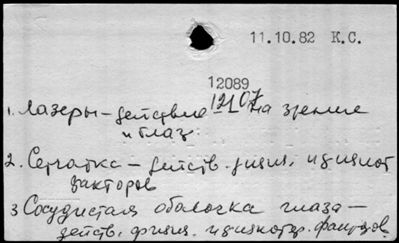 11.10.82 К.С.
12089
12107
1. Лазеры - действие на зрение
и глаз.
2. Сетчатка - действ. физич. и
факторов
3 Сосудистая оболочка глаза -
действ. физич. факторов